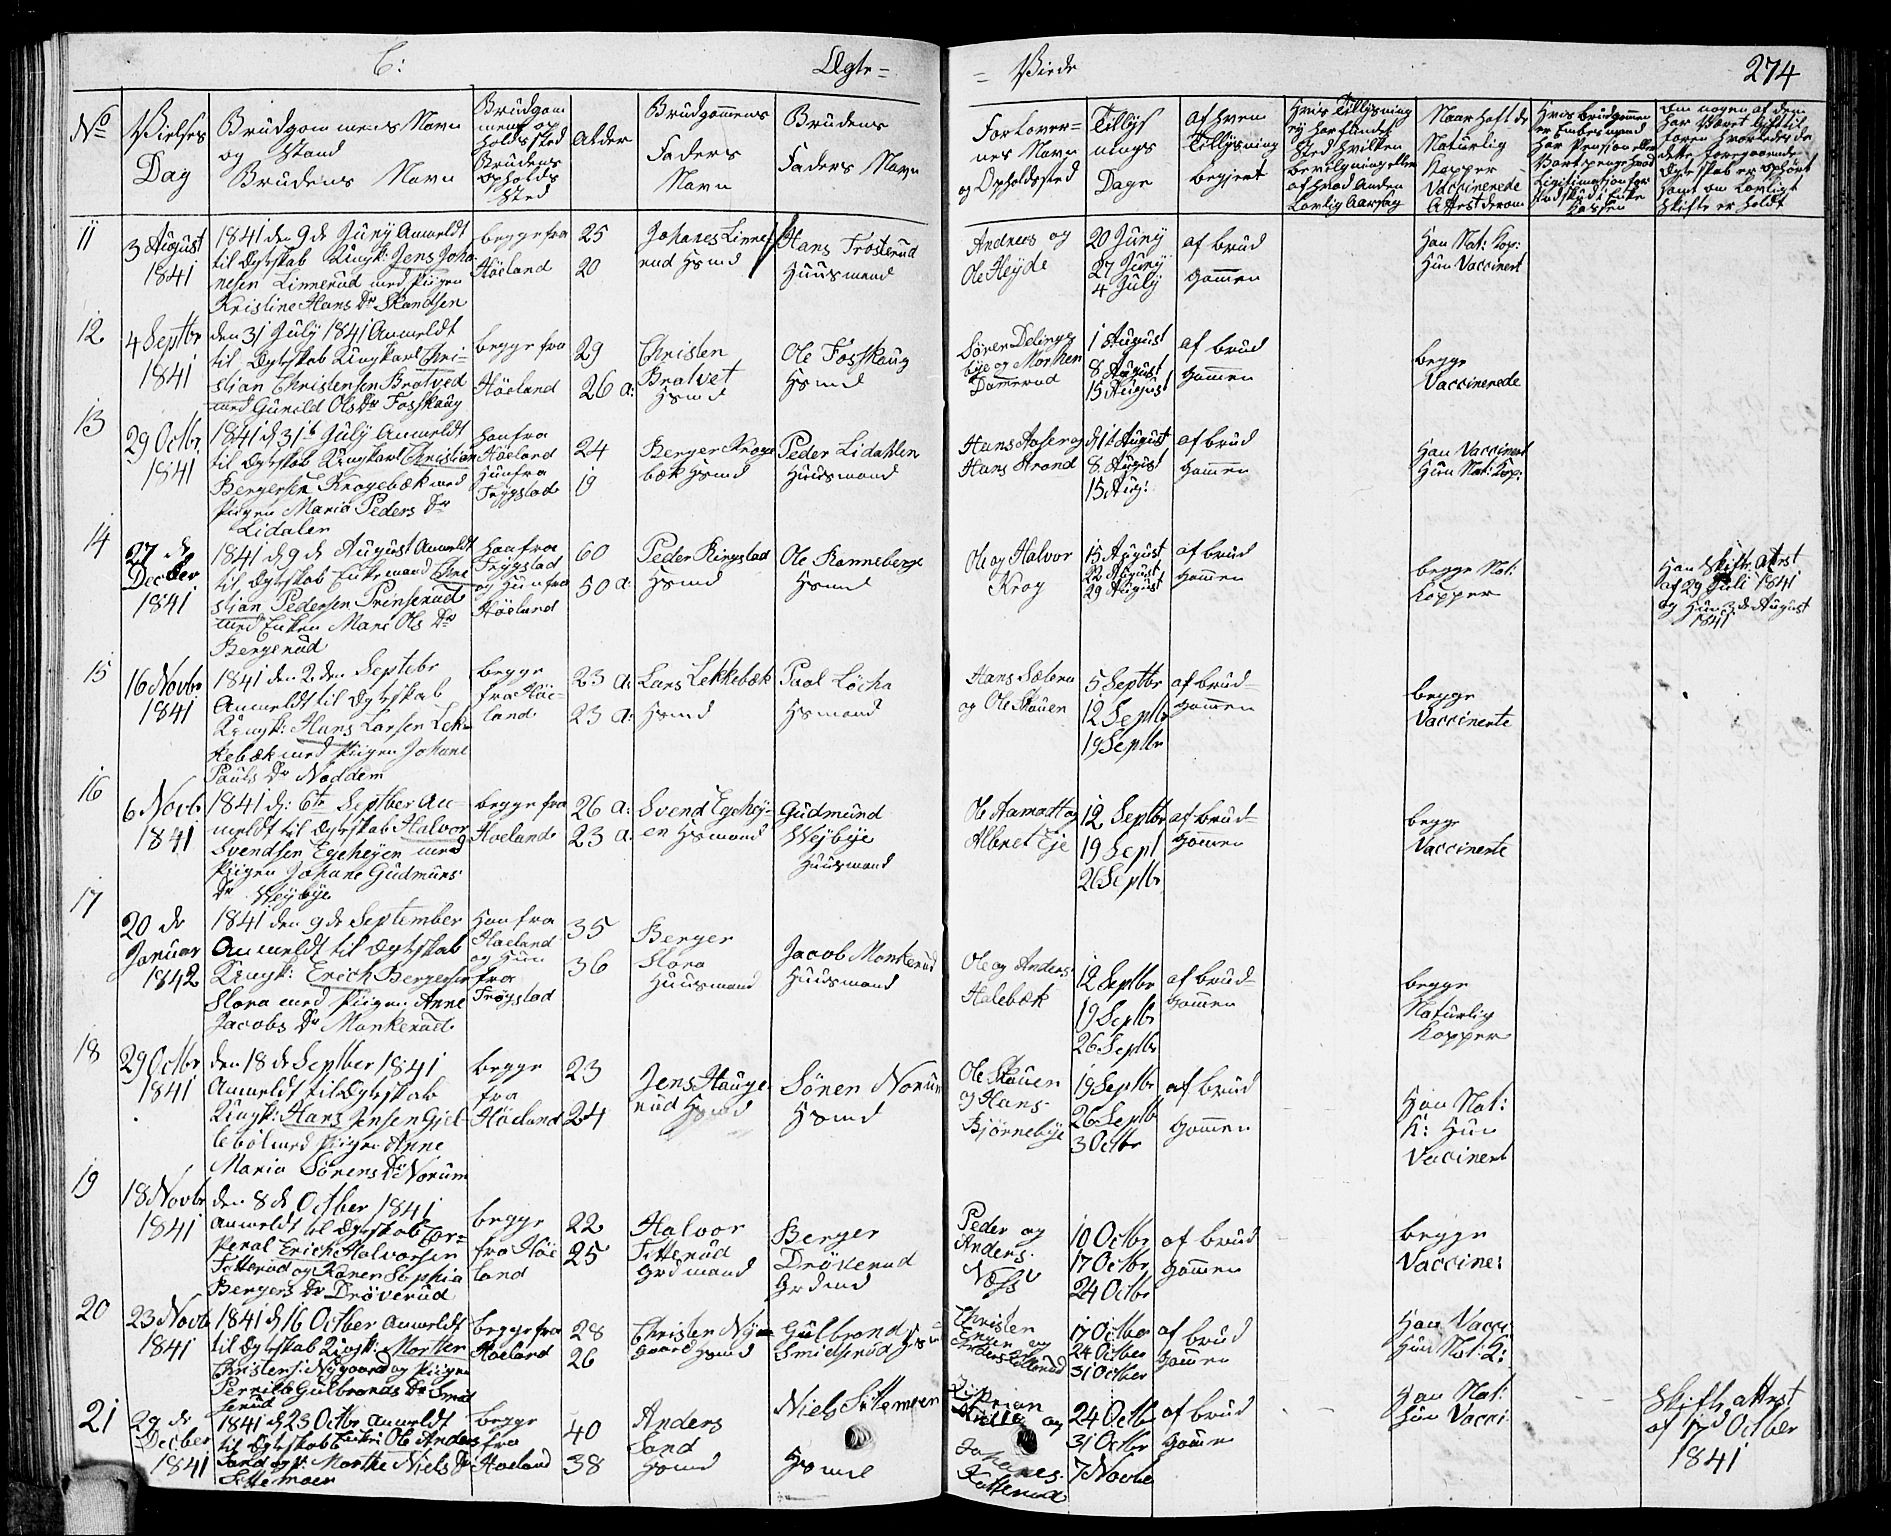 C: Ægte=
= Viede 274
No
Vielses Dag
Brudgommens Navn og Stand Brudens Navn
Brudgommens opholdssted Brudens opholds Sted
Alder
Brudgommens Faders Navn
Brudens Faders Navn
Forlovernes Navn og Opholdssted
Tillysnings Dage
af hvem Tillysning begjert
Hvis Tillysning ej har fundet Sted hvilken bevilgning eller af hvad anden Lovlig Aarsag
Naar haft de Naturlig Kopper Vaccinerede Attest derom
11
3 August 1841
1841 den 9 de Juny Anmeldt
til Ægteskab Ungk: Jens Joha-
nesen Linnerud med Pigen
Kristine Hans Dr Skandsen
begge fra Høeland
25
20
Johanes Linne-
rud Hsmd
Hans Trosterud
Huusmand
Andreas og
Ole Heyde
20 Juny
27 Juny
4 July
af brud
gommen
Han Nat: Kop:
Hun Vaccinert
12
4 Septbr
1841
den 31 July 1841 Anmeldt
til Ægteskab Ungkarl Chri-
stian Christensen Bratved
med Gunild Ols Dr Fosshaug
begge fra
Høeland
29
26 a:
Christen
Bratvet
Hsmd
Ole Fosshaug
Hsmd
Søren Delingsbye og Morten
Dammerud
1 August
8 August
15 August
af brud
gommen
begge
Vaccinerede
13
29 Octbr
1841
1841 d 31t July Anmeldt
til Ægteskab Ungkarl Christian
Bergersen Krogebæk med
Pigen Maria Peders Dr
Lidalen
Han fra
Høeland
Hun fra
Trygstad
24
19
Berger Kroge
bæk Hsmd
Peder Lidahlen
Huusmand
Hans Aaser og
Hans Strand
d 1t August
8 August
15 Aug:
af brud
gommen
Han Vaccinert
Hun Nat: Kop:
14
27 de
Decber
1841
1841 d 9 de August Anmeldt
til Ægteskab Enkemand Chri
stian Pedersen Prinserud
med Enken Mari Ols Dr
Bergerud
Han fra
Trygstad
og Hun fra
Høeland
60
50 a:
Peder Ringstad
Hsmd
Ole Ranneberg
Hsmd
Ole og Halvor
Krog
15 August
22 August
29 August
af brud
gommen
begge Nat:
Kopper
Han Skifte Attest
af 29 Juli 1841
og Hun 3 de August
1841
15
16 Novbr
1841
1841 den 2 den Septbr
Anmeldt til Ægteskab
Ungk: Hans Larsen Lek-
kebæk med Pigen Johane
Pauls Dr Noddem
begge
fra Høe-
land
23 a:
23 a:
Lars Lekkebæk
Hsmd
Paal Løcha
Hsmand
Hans Sæbra
og Ole Skauen
5 Septbr
12 Septbr
19 Septbr
af brud-
gommen
begge
Vaccinerte
16
6 Novb
1841
1841 d: 6te Septber An-
meldt til Ægteskab Halvor
Svendsen Egeheyen med
Pigen Johane Gudmuns
Dr Weybye
begge fra
Høeland
26 a:
23 a:
Svend Egehey-
en Hsmand
Gudmund
Weybye
Huusmand
Ole Aamodt og
Albret Eje
12 Septbr
19 Sept
26 Septbr
af brud-
gommen
begge
Vaccinerte
17
20 de
Januar
1842
1841 den 9 de September
Anmeldt til Ægteskab
Ungk: Erich Bergersen
Slora med Pigen Anne
Jacobs Dr Monkerud
Han fra
Høeland
og Hun
fra
Trøgstad
35
36
Berger
Slora
Huusmand
Jacob Monkerud
Huusmand
Ole og Anders
Halebæk
12 Septbr
19 Septbr
26 Septbr
af brud-
gommen
begge
Naturlig
Kopper
18
29 Octbr
1841
den 18 de Septber 1841
Anmeldt til Ægteskab
Ungk: Hans Jensen Gjel-
lebøl med Pigen Anne
Maria Sørens Dr Norum
begge
fra
Høeland
23
24
Jens Hauge
rud Hsmd
Søren Norum
Hsmd
Ole Skauen
og Hans
Bjørnebye
19 Septbr
26 Septb
3 Octbr
af brud
gommen
Han Nat:
K: Hun
Vaccinert
19
18 Novbr
1841
den 8 de October 1841
anmeldt til Ægteskab Cor=
peral Erich Halvorsen
Fetterud og Karen Sophia
Bergers Dr Drøverud
begge
fra Høe
land
22
25
Halvor
Fetterud
Grdmand
Berger
Drøverud
Grdmd
Peder og
Anders
Næss
10 Octbr
17 Octbr
24 Octbr
af brud
gommen
begge
Vaccine:
20
23 Novb
1841
1841 d 16 Octber Anmeldt
til Ægteskab Ungk: Morten
Christens: Nygaard og Pigen
Pernille Gulbrands Dr Smid
serud
begge fra
Høeland
28
26
Christen Ny=
gaard Hsmd
Gulbrand
Smidserud
Christen
17 Octber
24 Octber
31 Octber
af brud
gommen
Han Vacci:
Hun Nat: K:
21
29 de
Decber
1841
1841 d 23 Octbr Anmeldt
til Ægteskab Enkem: Ole Anders
Sand og P: Marthe Niels Dr
Settemoen
begge
fra
Høeland
40
38
Anders
Sand
Hsmd
Niels Settemoen
Hsmd
og
Johanes
24 Octb
31 Octbr
7 Novbr
af brud
gommen
Han Nat:
Hun Vacci
Skifte Attest
af 17 October
1841